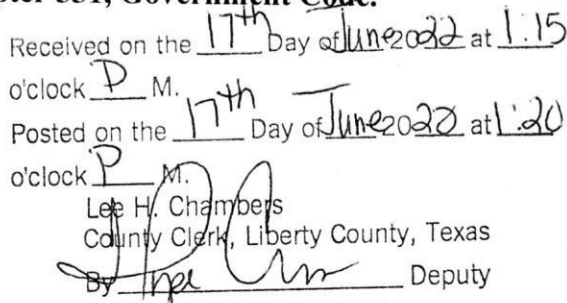 ter 551, Government Code.
Received on the 17th Day of June 2022 at 1:15
o'clock P M.
Posted on the 17th Day of June 2022 at 1:20
o'clock P M.
Lee H. Chambers
County Clerk, Liberty County, Texas
By Deputy